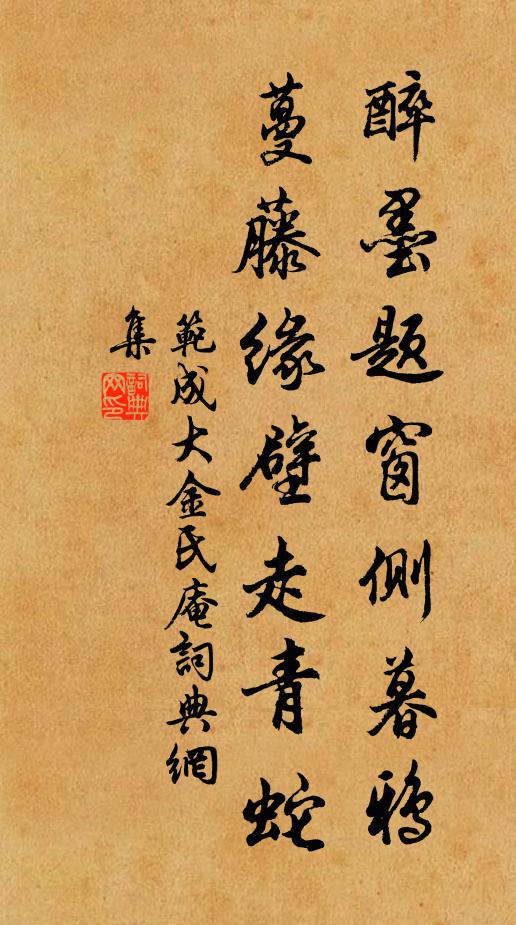 醉墨題窗側暮鴉
蔓藤緣壁走青蛇
範成大金氏庵詞典網
集
詞典
网印